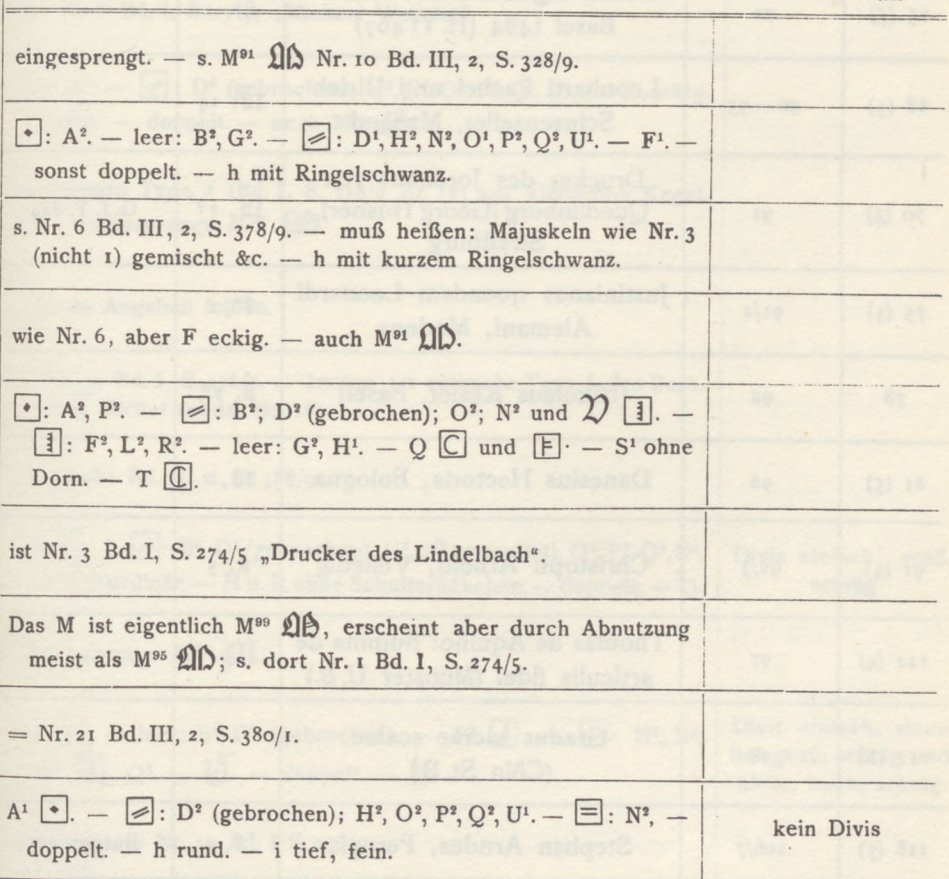 eingesprengt. — s. M⁹¹ 𝔐 Nr. 10 Bd. III, 2, S. 328/9.
: A². — leer: B², G². — : D¹, H², N², O¹, P², Q², U¹. — F¹. —
sonst doppelt. — h mit Ringelschwanz.
s. Nr. 6 Bd. III, 2, S. 378/9. — muß heißen: Majuskeln wie Nr. 3
(nicht 1) gemischt &c. — h mit kurzem Ringelschwanz.
wie Nr. 6, aber F eckig. — auch M⁹¹ 𝔐.
: A², P². — : B²; D² (gebrochen); O²; N² und . —
: F², L², R². — leer: G², H¹. — Q C und F. — S¹ ohne
Dorn. — T ℂ.
ist Nr. 3 Bd. I, S. 274/5 „Drucker des Lindelbach“.
Das M ist eigentlich M⁹⁹ 𝔐, erscheint aber durch Abnutzung
meist als M⁹⁵ 𝔐; s. dort Nr. 1 Bd. I, S. 274/5.
= Nr. 21 Bd. III, 2, S. 380/1.
A¹ . — : D² (gebrochen); H², O², P², Q², U¹. — : N², —
doppelt. — h rund. — i tief, fein.
kein Divis